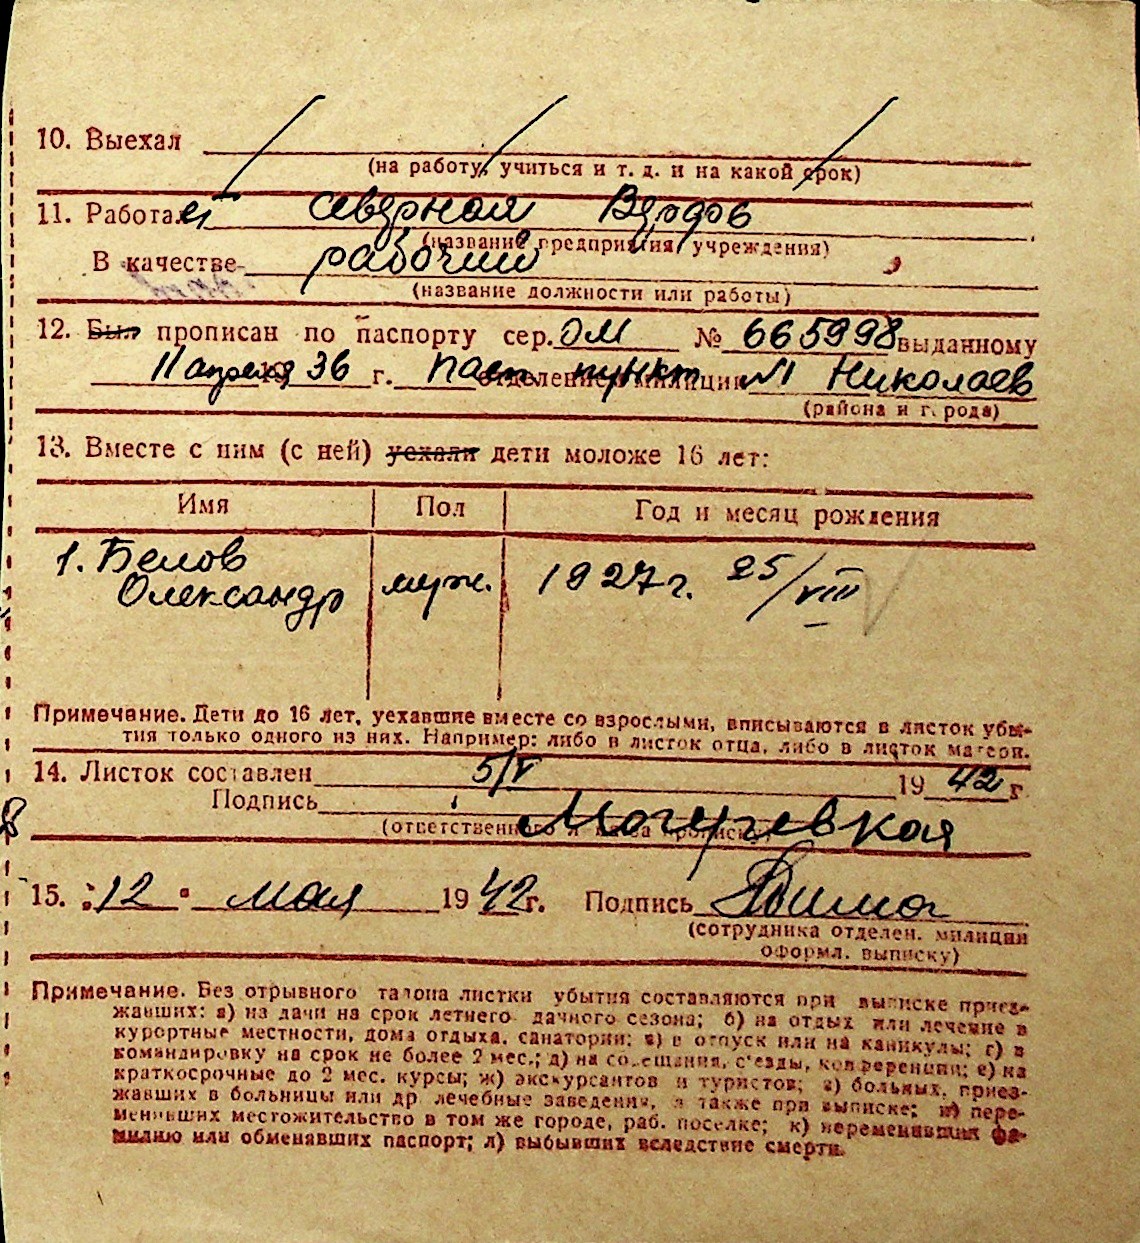 10. Выехал
(на работу, учиться и т. д. и на какой срок)
11. Работает северной Верфь
(название предприятия учреждения)
В качестве рабочий
(название должности или работы)
12. Был прописан по паспорту сер. ОМ № 665998 выданному
11 апреля 1936 г. Пасп. пункт отделением милиции №1 Николаев
(района и города)
13. Вместе с ним (с ней) уехали дети моложе 16 лет:
Имя Пол Год и месяц рождения
1. Белов
Олександр муж. 1927 г. 25/VIII
Примечание. Дети до 16 лет, уехавшие вместе со взрослыми, вписываются в листок убы-
тия только одного из них. Например: либо в листок отца, либо в листок матери.
14. Листок составлен 5/V 1942 г
Подпись
15. "12" мая 1942 г. Подпись
(сотрудника отделен. милиции
оформл. выписку)
Примечание. Без отрывного талона листки убытия составляются при выписке приез-
жавших: а) на дачи на срок летнего дачного сезона; б) на отдых или лечение в
курортные местности, дома отдыха, санатории; в) в отпуск или на каникулы; г) в
командировку на срок не более 2 мес.; д) на совещания, съезды, конференции; е) на
краткосрочные до 2 мес. курсы; ж) экскурсантов и туристов; з) больных, приез-
жавших в больницы или др лечебные заведения, а также при выписке; и) пере-
менивших местожительство в том же городе, раб. поселке; к) переменивших фа-
милию или обменявших паспорт; л) выбывших вследствие смерти.